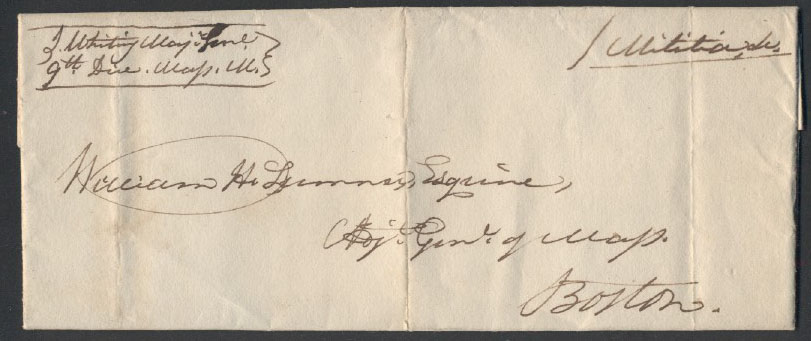 J. Whiting Maj. Genl.
9th Div. Mass. M.
Militia,
William H. Sumner, Esquire,
Adj. Genl. of Mass.
Boston.